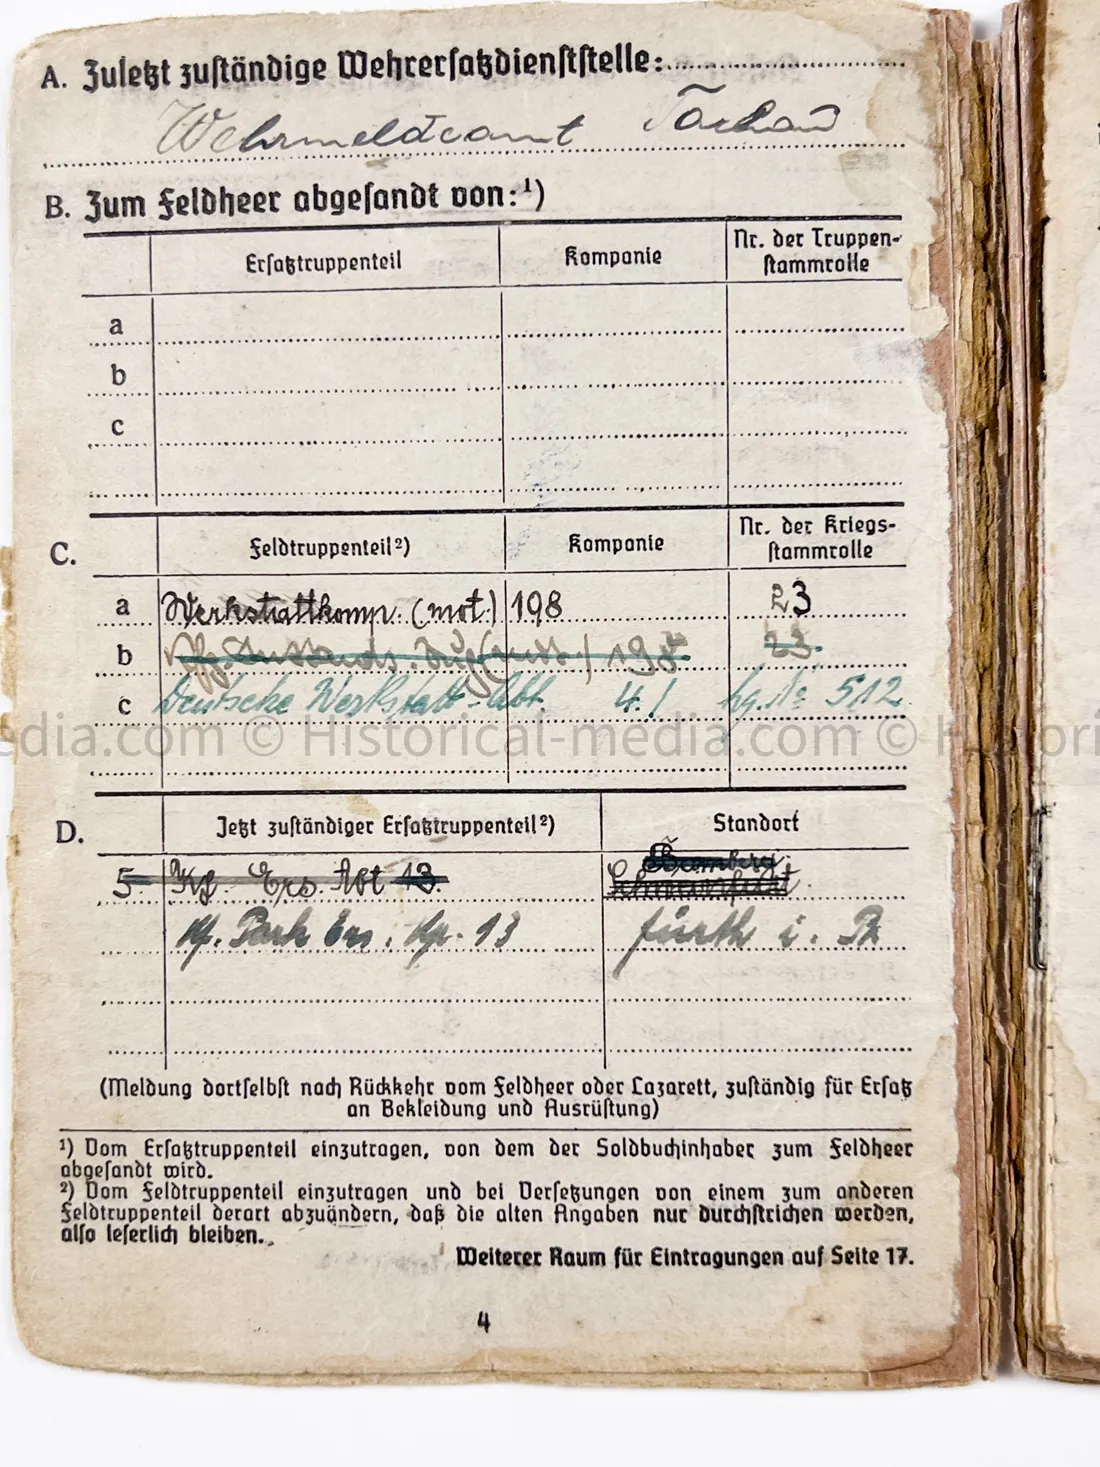 A. Zuletzt zuständige Wehrersatzdienststelle:
Wehrmeldeamt Tachau
B. Zum Feldheer abgesandt von:¹)
Ersatztruppenteil Kompanie Nr. der Truppen-
stammrolle
a
b
c
C. Feldtruppenteil²) Kompanie Nr. der Kriegs-
stammrolle
a Werkstattkomp. (mot.) 198 23
b 198 23.
c Deutsche Werkstatt-Abt. 4./ 512
edia.com © Historical-media.com © Histori
D. Jetzt zuständiger Ersatztruppenteil²) Standort
Bamberg
5 Kf. Ers. Abt 13.
Kf. Park Ers. Kp. 13 Fürth i.
(Meldung dortselbst nach Rückkehr vom Feldheer oder Lazarett, zuständig für Ersatz
an Bekleidung und Ausrüstung)
¹) Vom Ersatztruppenteil einzutragen, von dem der Soldbuchinhaber zum Feldheer
abgesandt wird.
²) Vom Feldtruppenteil einzutragen und bei Versetzungen von einem zum anderen
Feldtruppenteil derart abzuändern, daß die alten Angaben nur durchstrichen werden,
also leserlich bleiben.
Weiterer Raum für Eintragungen auf Seite 17.
4